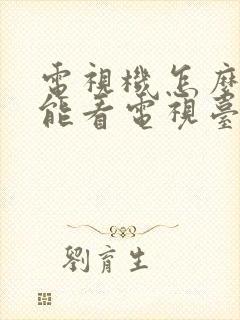 電視機怎麼
能看電視臺
劉育生